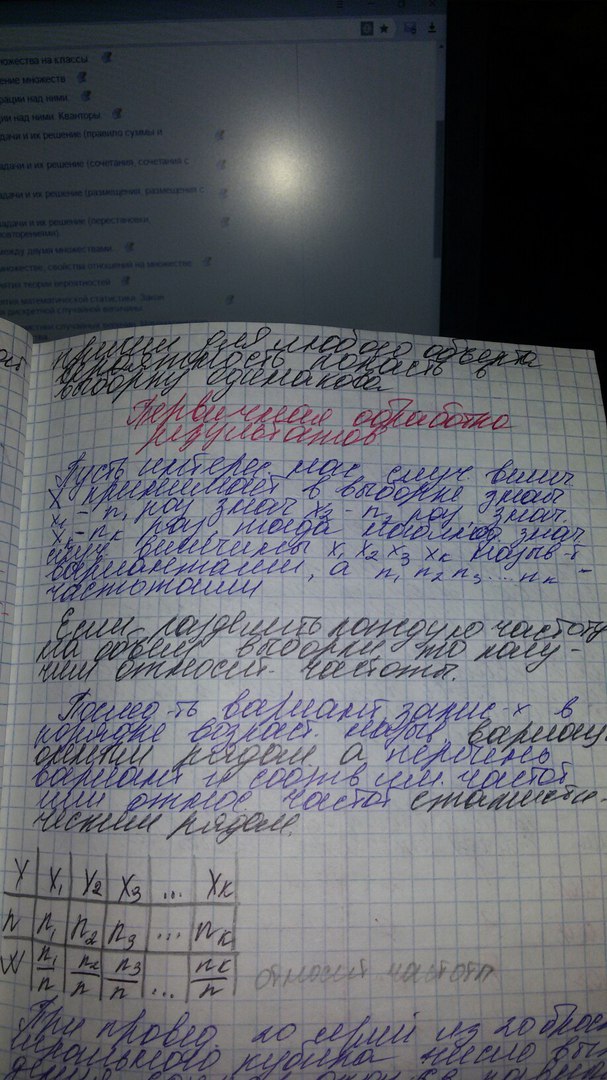 ножества на классы
ение множеств
рации над ними.
ции над ними. Кванторы.
адачи и их решение (правило суммы и
адачи и их решение (сочетания, сочетания с
адачи и их решение (размещения, размещения с
адачи и их решение (перестановки,
овторениями).
между двумя множествами.
множестве, свойства отношений на множестве.
ятия теории вероятностей
ятия математической статистики. Закон
я дискретной случайной величины
для любого объекта
вероятность попасть в
выборку одинакова.
Первичная обработка
результатов
Пусть интерес. нас случ. велич.
X принимает в выборке знач.
x₁ - n₁ раз знач x₂ - n₂ раз знач.
xₖ - nₖ раз, тогда знач
случ величины x₁ x₂ x₃ xₖ назыв-т
вариантами, а n₁ n₂ n₃ ... nₖ -
частотами
Если разделить каждую частоту
на объем выборки то полу-
чим относит. частоты.
Послед-ть вариант запис-х в
порядке возраст. назыв вариац
онным рядом а перечень
вариант и соотв им частот
или относ частот статисти-
ческим рядом.
X | X₁ | X₂ | X₃ | ... | Xₖ
n | n₁ | n₂ | n₃ | ... | nₖ
W | n₁/n | n₂/n | n₃/n | ... | nₖ/n относит частоты
При провед. 20 серий из 20 брос
игрального кубика число вы